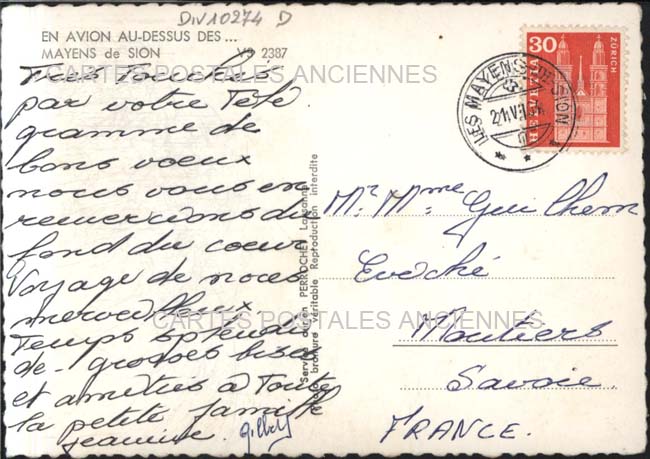 DIV10274 D
EN AVION AU-DESSUS DES ...
MAYENS de SION VS 2387
Très touchés
par votre Télé
gramme de
bons voeux
nous vous en
remercions du
fond du coeur
Voyage de noces
merveilleux.
Temps splendi
de - grosses bises
et amitiés à Toute
la petite famille
Jeannine. Gilbert
Service avion PERROCHET Lausanne
Photo bromure véritable Reproduction interdite
30
HELVETIA
ZÜRICH
LES MAYENS DE SION
21.VI.
Mr. Mme Guilhem
Evêché
Moutiers
Savoie.
FRANCE.
CARTES POSTALES ANCIENNES
CARTES POSTALES ANCIENNES